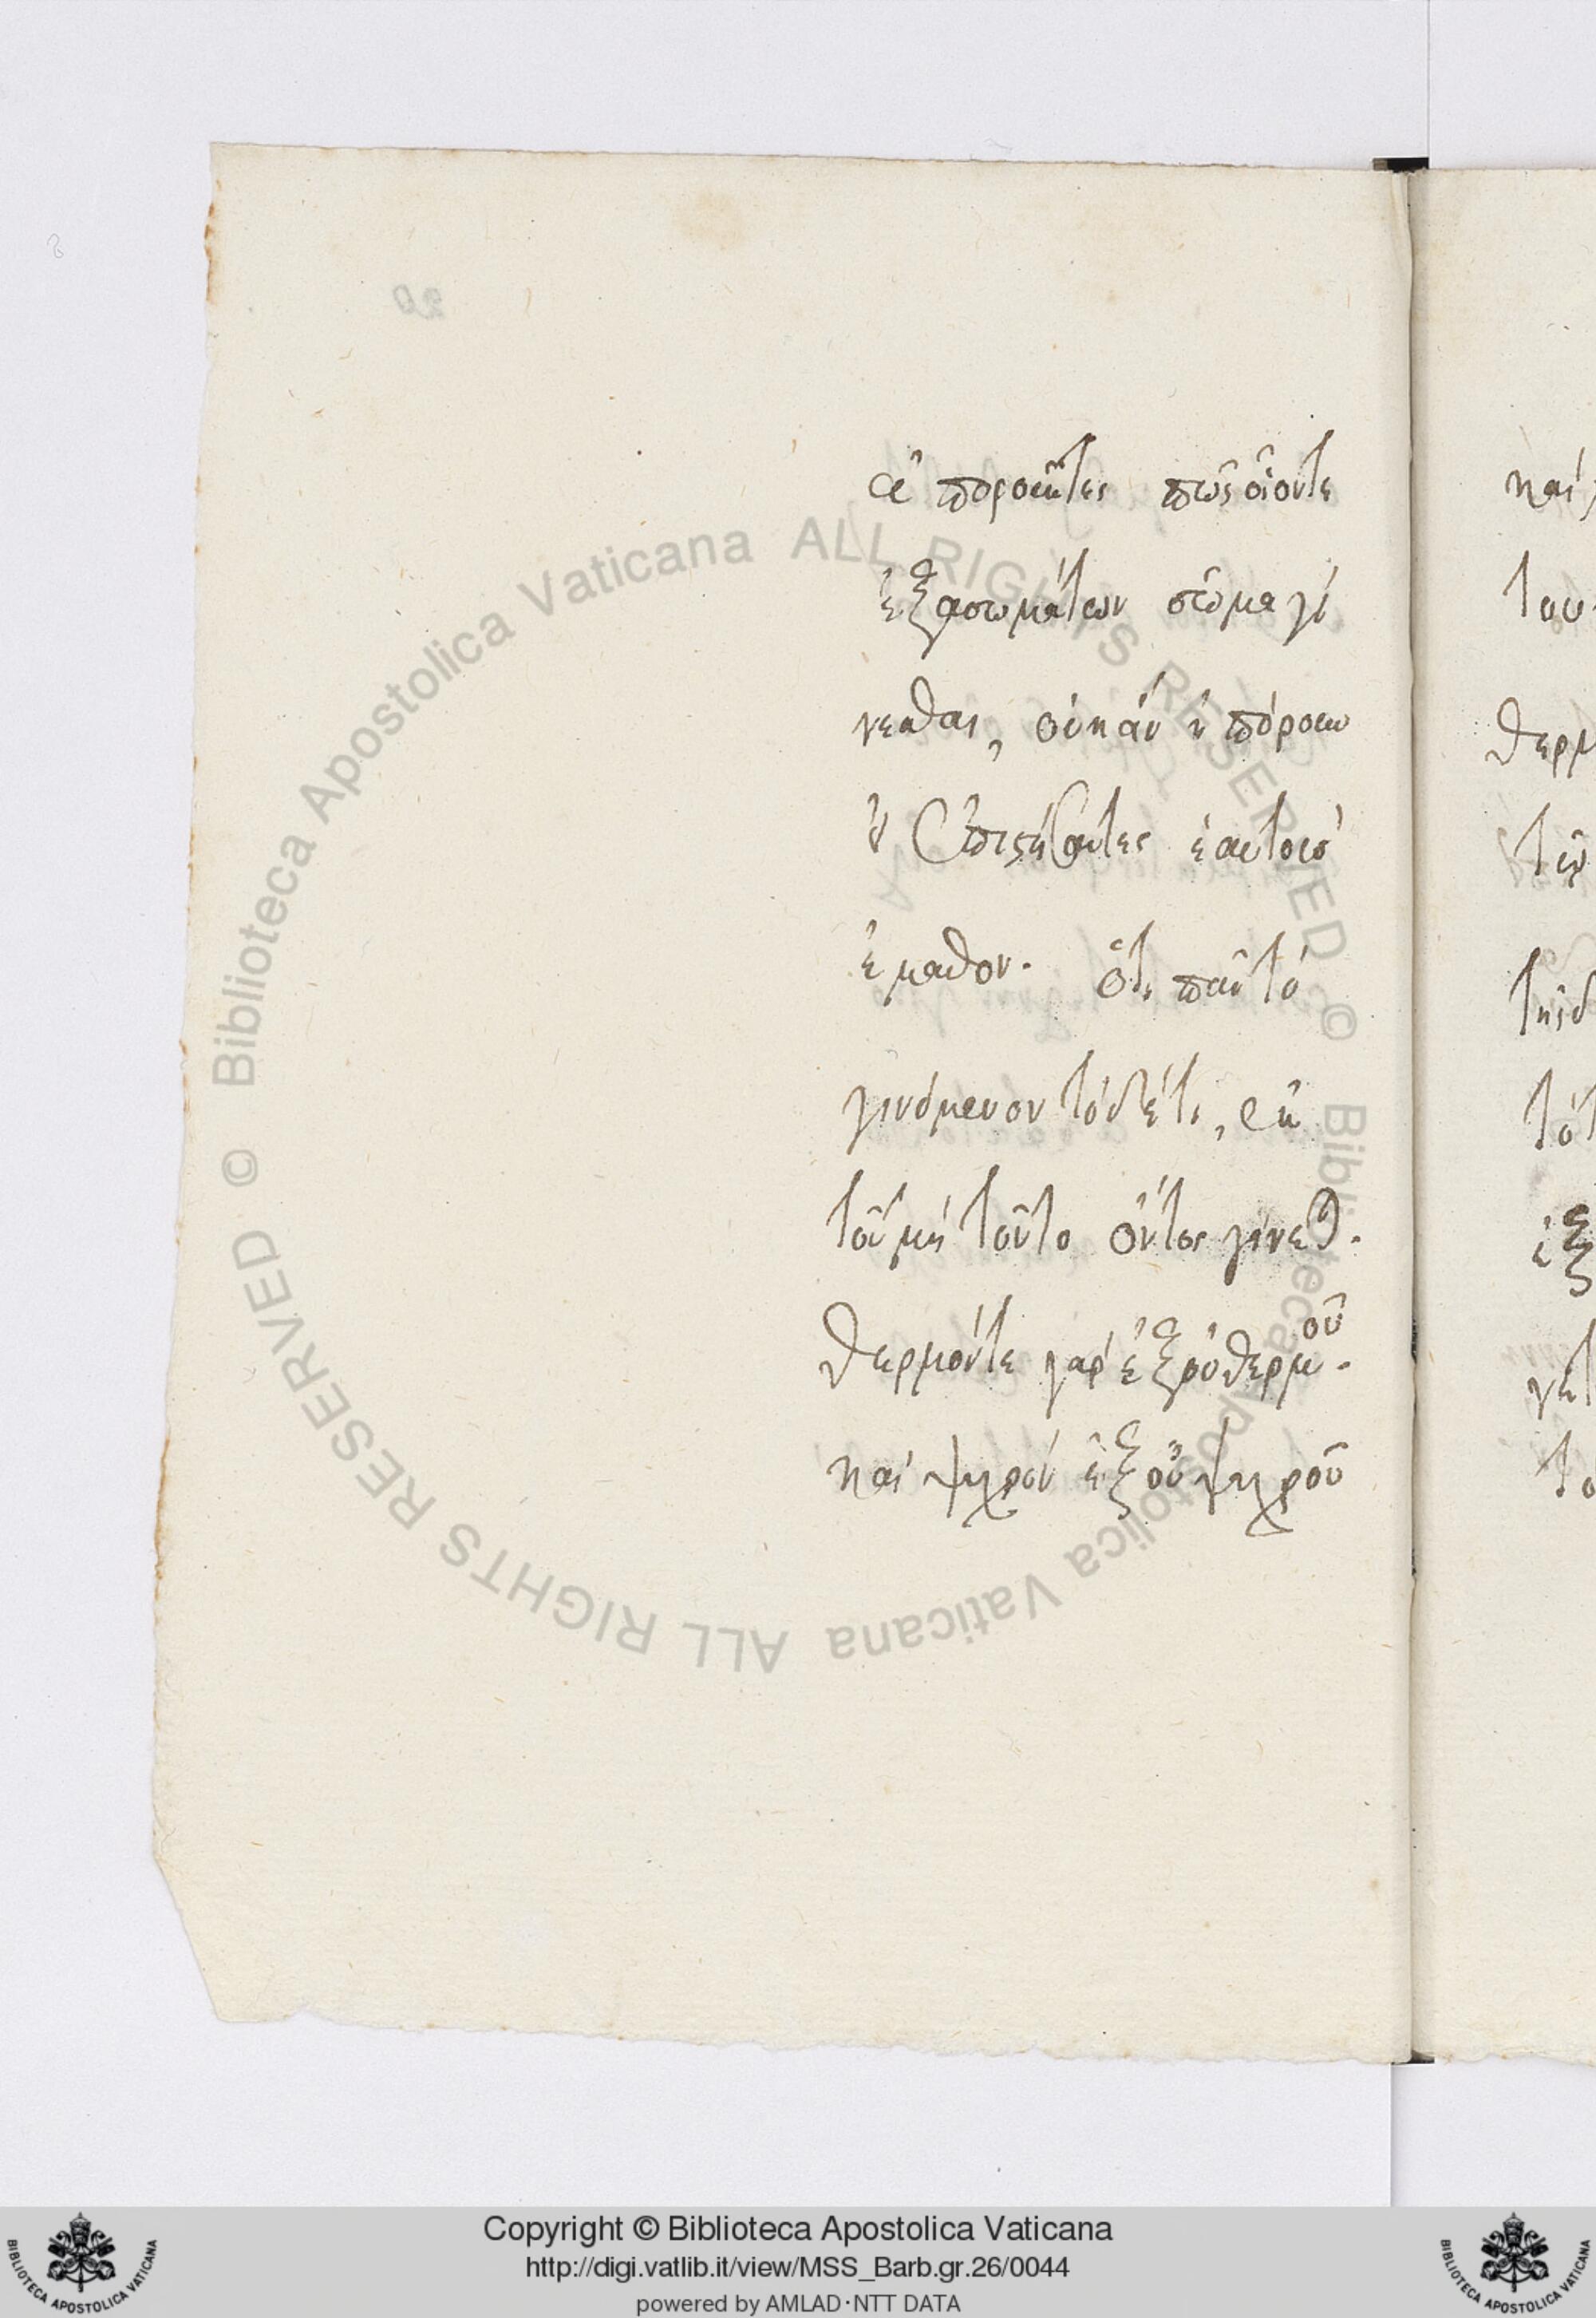 ἀποροῦντες πῶς οἷόντε
ἐξ ἀσωμάτων σῶμα γί
νεσθαι, οὐκ ἂν ἠπόρουν
ἂν ἐπιστήσαντες ἑαυτοὺς
ἔμαθον. ὅτι πᾶν τὸ
γινόμενον τόδέτι, ἐκ
τοῦ μὴ τοῦτο ὄντος γίνεται.
θερμόντε γὰρ ἐξ οὐ θερμοῦ.
καὶ ψυχρὸν ἐξ οὐ ψυχροῦ
και
του
θερμ
τὸ
ἐξ
νετ
το
Biblioteca Apostolica Vaticana ALL RIGHTS RESERVED © Biblioteca Apostolica Vaticana ALL RIGHTS RESERVED ©
Copyright © Biblioteca Apostolica Vaticana
http://digi.vatlib.it/view/MSS_Barb.gr.26/0044
powered by AMLAD·NTT DATA
BIBLIOTECA APOSTOLICA VATICANA
BIBLIOTECA APOSTOLICA VATICANA